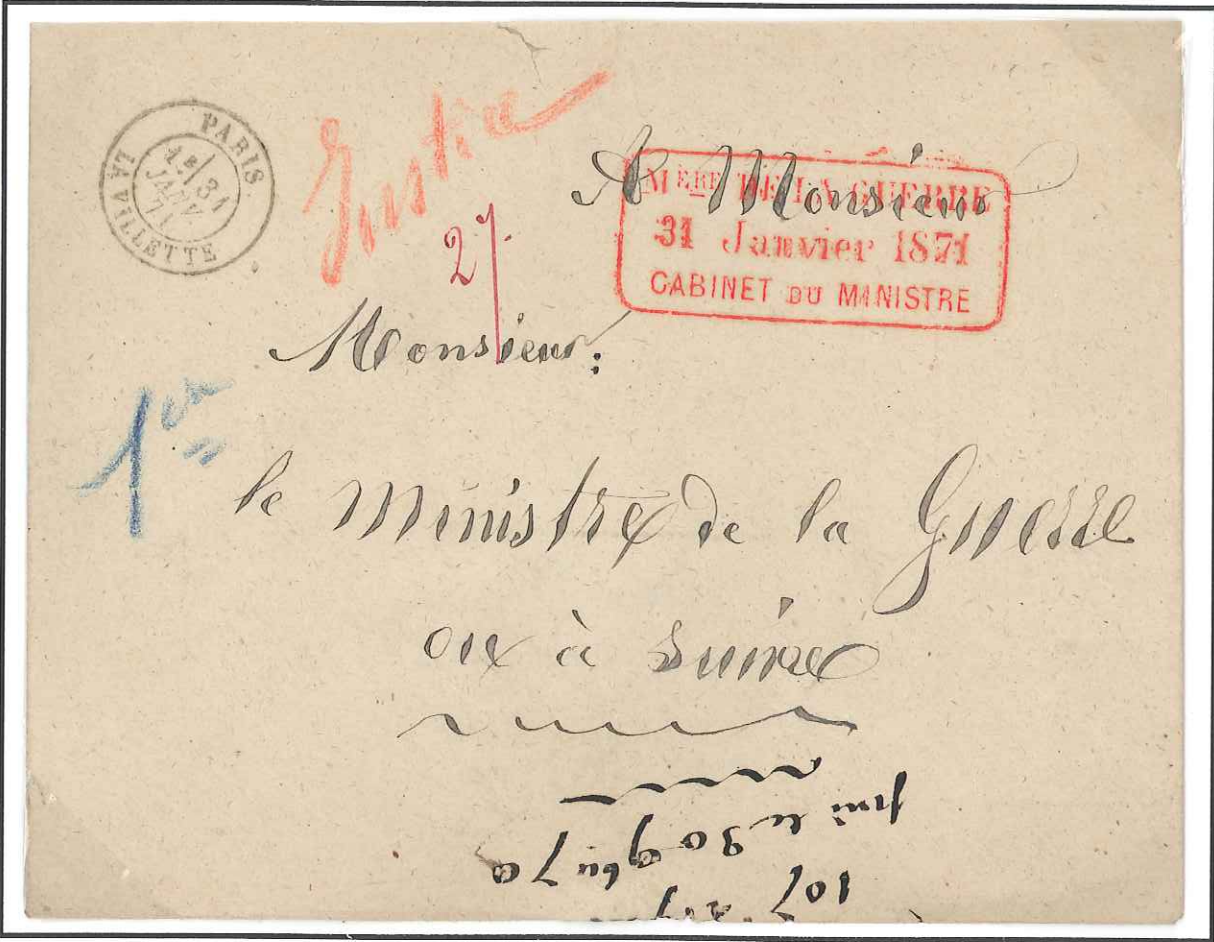 PARIS
1E/ 31
JANV
71
LA VILLETTE
Justice
27
A Monsieur
MERE DE LA GUERRE
31 Janvier 1871
CABINET DU MINISTRE
Monsieur:
1er
le Ministre de la Guerre
ou à suivre
107
le 30 9bre 70